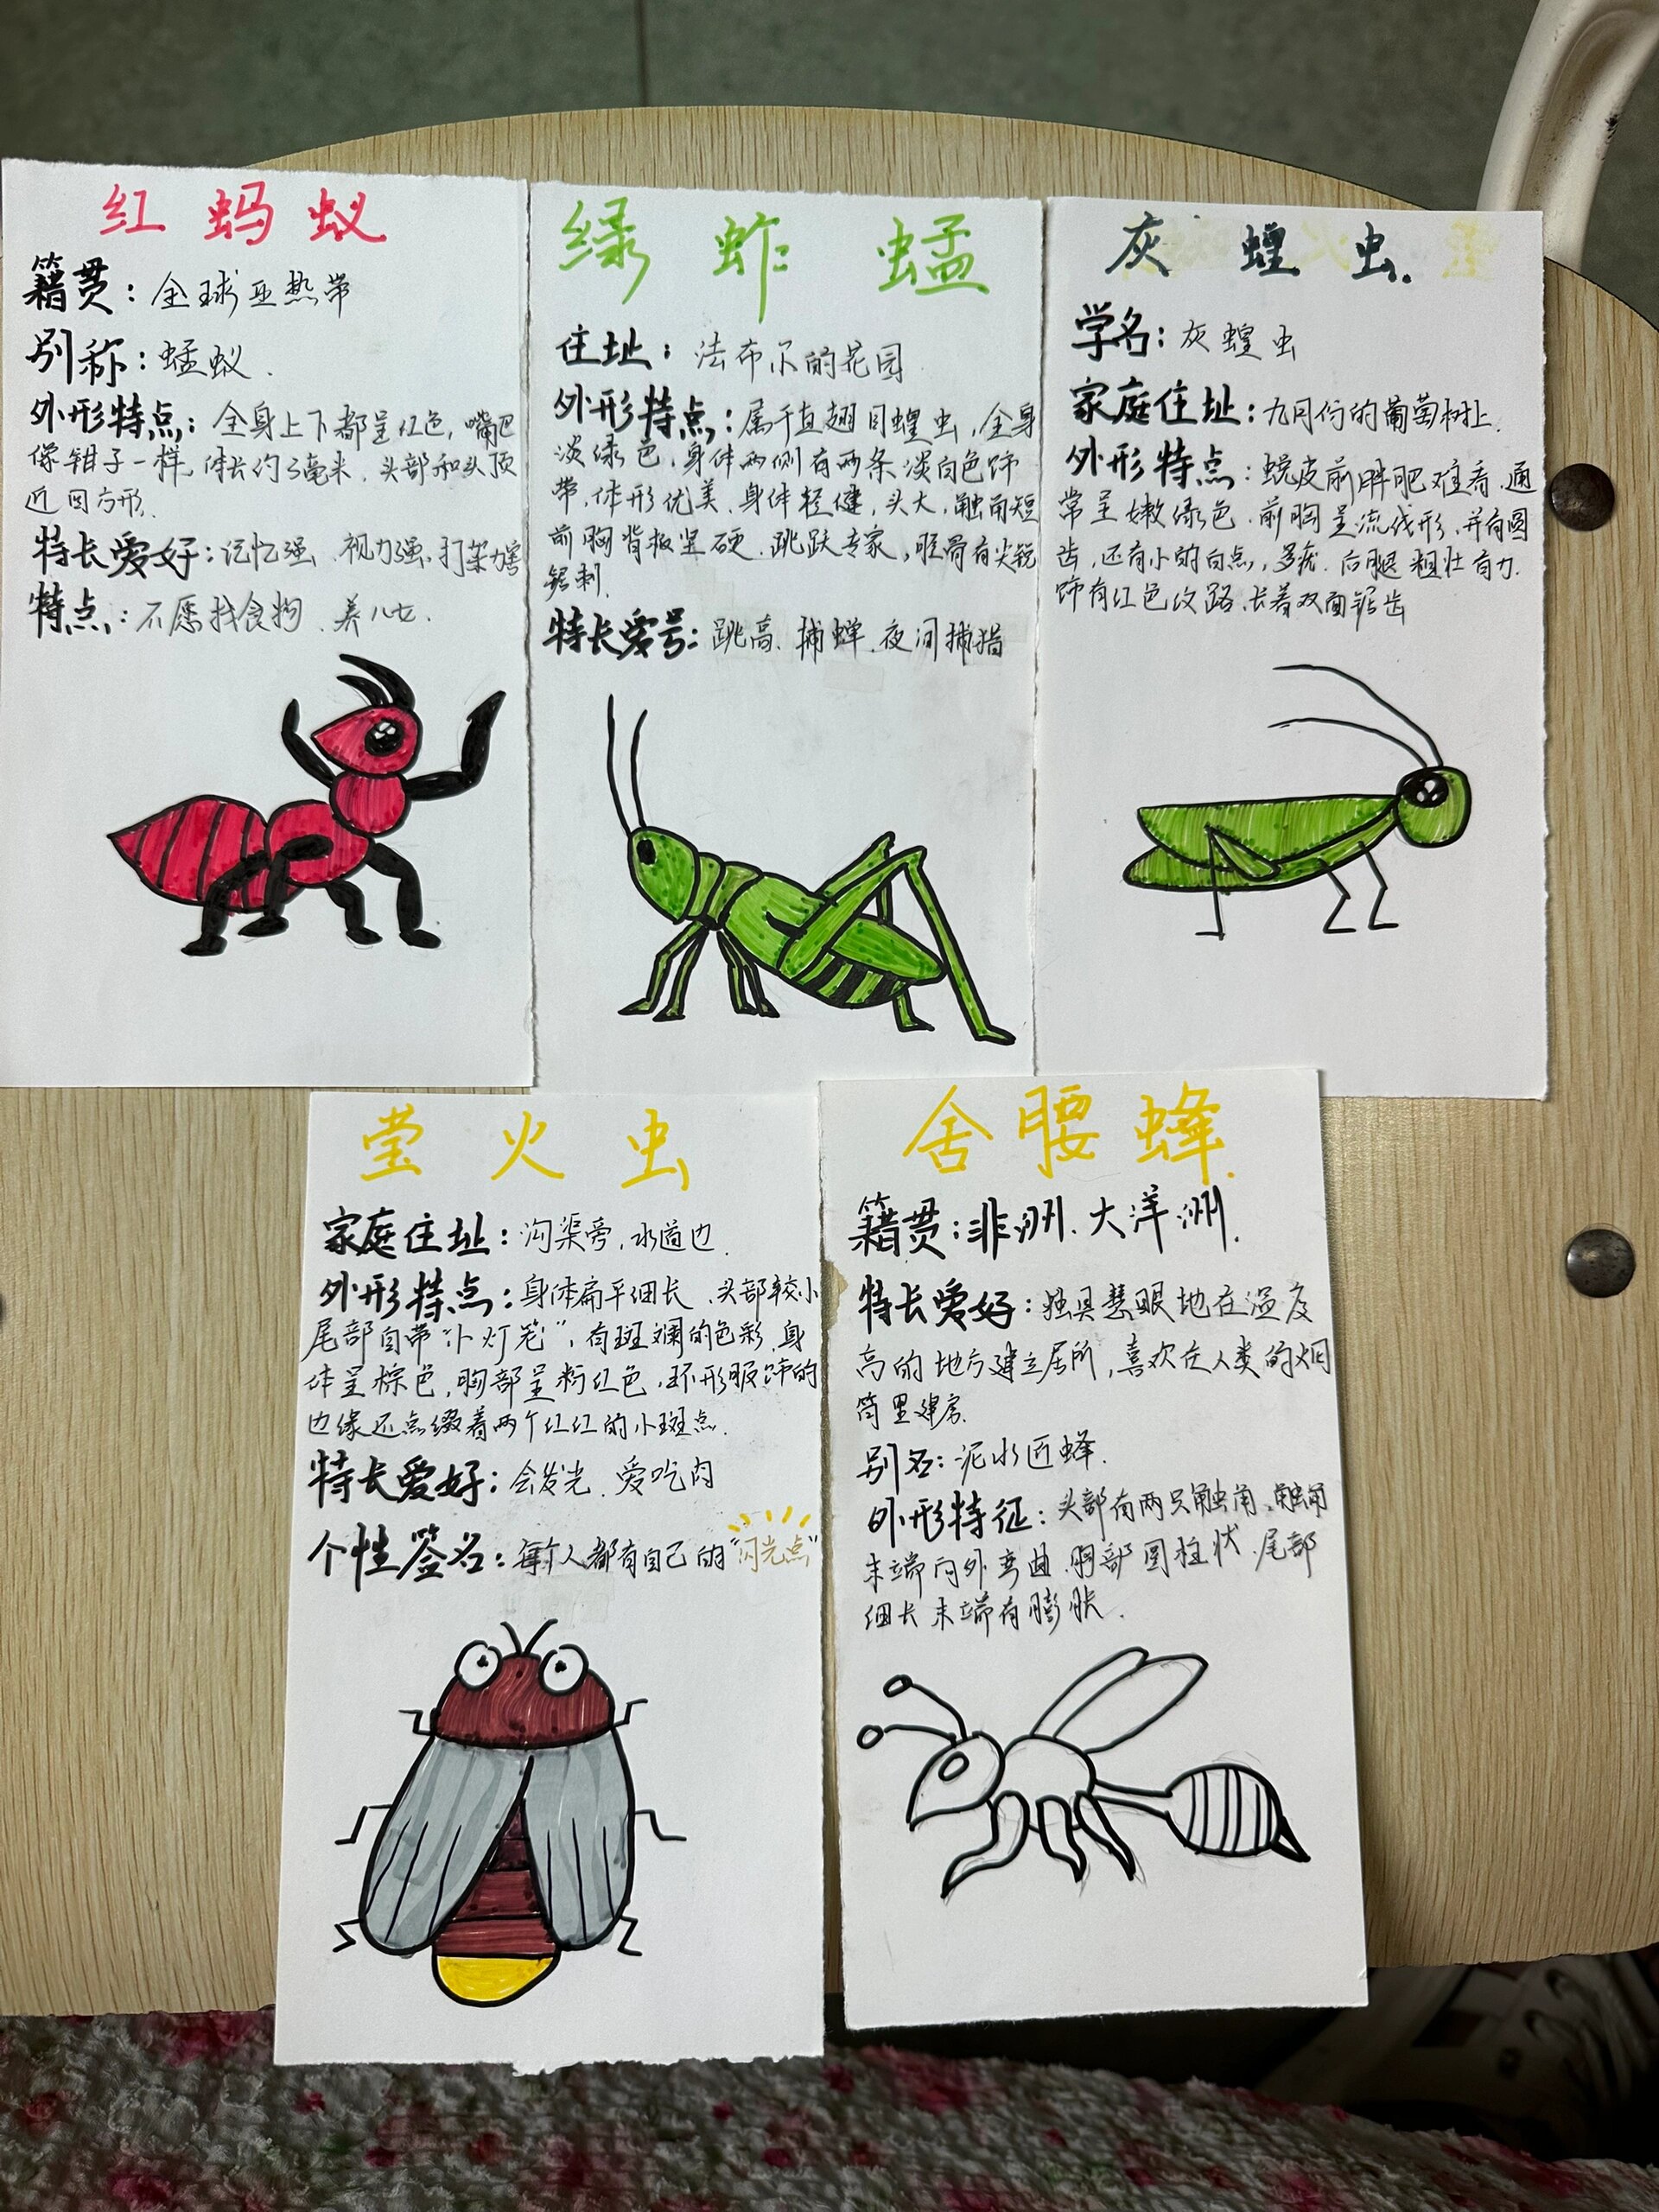 红蚂蚁
籍贯：全球亚热带
别称：蜢蚁.
外形特点：全身上下都呈红色，嘴巴
像钳子一样，体长约3毫米、头部和头顶
近四方形.
特长爱好：记忆强、视力强、打架力害
特点：不愿找食物、养儿女.
绿蚱蜢
住址：法布尔的花园
外形特点：属于直翅目蝗虫，全身
淡绿色，身体两侧有两条淡白色饰
带，体形优美、身体轻健，头大，触角短
前胸背板坚硬、跳跃专家，胫骨有尖锐
锯刺.
特长爱号：跳高、捕蝉、夜间捕猎
灰蝗虫.
学名：灰蝗虫
家庭住址：九月份的葡萄树上.
外形特点：蜕皮前肥胖难看、通
常呈嫩绿色、前胸呈流线形，并有圆
齿，还有小的白点，多疣、后腿粗壮有力.
饰有红色纹路、长着双面锯齿
萤火虫
家庭住址：沟渠旁，水道边.
外形特点：身体扁平细长、头部较小
尾部自带“小灯笼”，有斑斓的色彩、身
体呈棕色，胸部呈粉红色，环形服饰的
边缘还点缀着两个红红的小斑点.
特长爱好：会发光、爱吃肉
个性签名：每个人都有自己的“闪光点”
舍腰蜂.
籍贯：非洲、大洋洲.
特长爱好：独具慧眼地在温度
高的地方建立居所，喜欢在人类的烟
筒里建房.
别名：泥水匠蜂.
外形特征：头部有两只触角、触角
末端向外弯曲、胸部圆柱状、尾部
细长末端有膨胀.